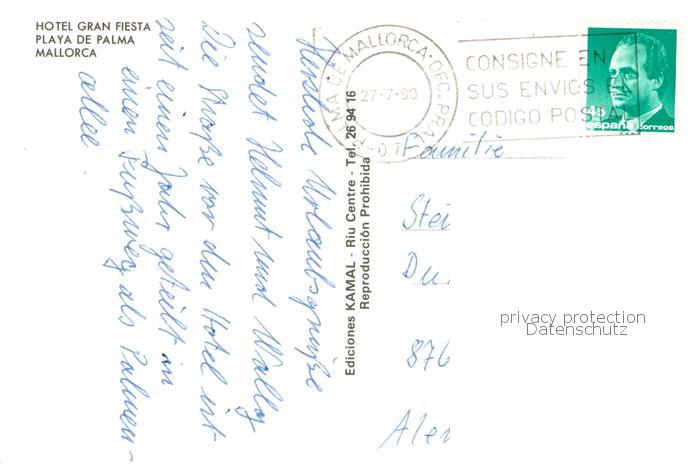 HOTEL GRAN FIESTA
PLAYA DE PALMA
MALLORCA
Herzliche Urlaubsgrüße
sendet Helmut und Wally
Die Straße vor dem Hotel ist
seit einem Jahr geteilt in
einen Fußweg als Palmen-
allee
Ediciones KAMAL - Riu Centre - Tel. 26 94 16
Reproducción Prohibida
PALMA DE MALLORCA·OFC. PRAL
27-7-90
-07
CONSIGNE EN
SUS ENVIOS E
CODIGO POSTA
45
españa correos
Familie
Stei
Du
876
Aler
privacy protection
Datenschutz